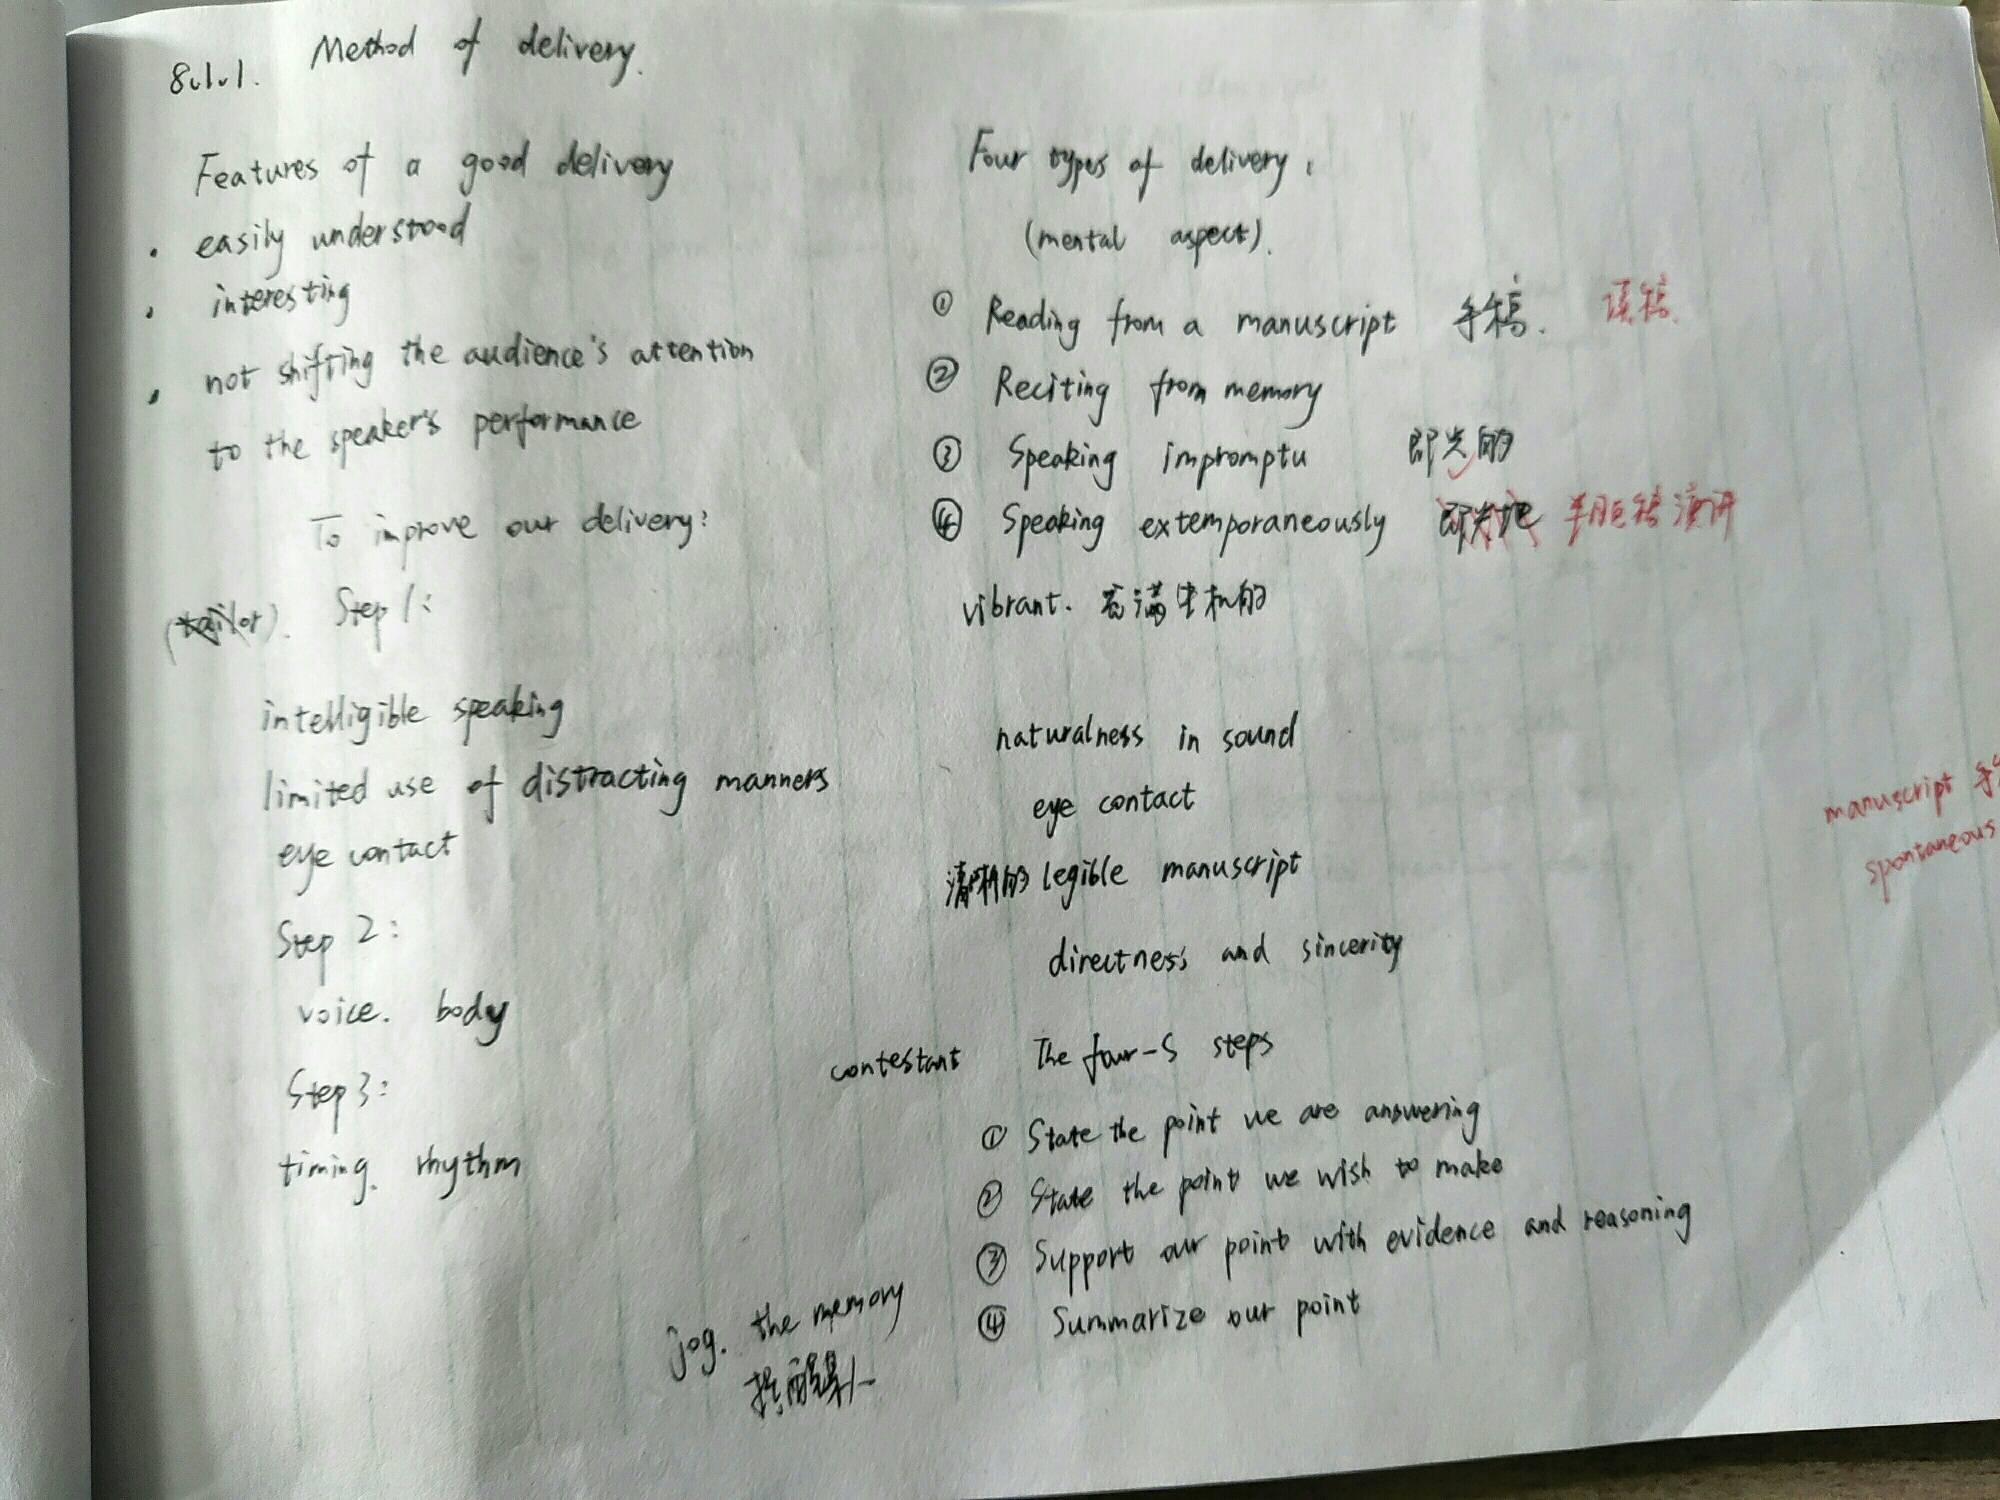 8.1.1. Method of delivery.
Features of a good delivery
· easily understood
· interesting
· not shifting the audience's attention
to the speaker's performance
To improve our delivery:
Step 1:
intelligible speaking
limited use of distracting manners
eye contact
Step 2:
voice. body
Step 3:
timing. rhythm
Four types of delivery:
(mental aspect).
① Reading from a manuscript 手稿. 读稿.
② Reciting from memory
③ Speaking impromptu 即兴的
④ Speaking extemporaneously 即兴地 半脱稿演讲
vibrant. 充满生机的
naturalness in sound
eye contact
清晰的 legible manuscript
directness and sincerity
contestant The four-S steps
① State the point we are answering
② State the point we wish to make
③ Support our point with evidence and reasoning
④ Summarize our point
jog. the memory
提醒某人
manuscript 手
spontaneous